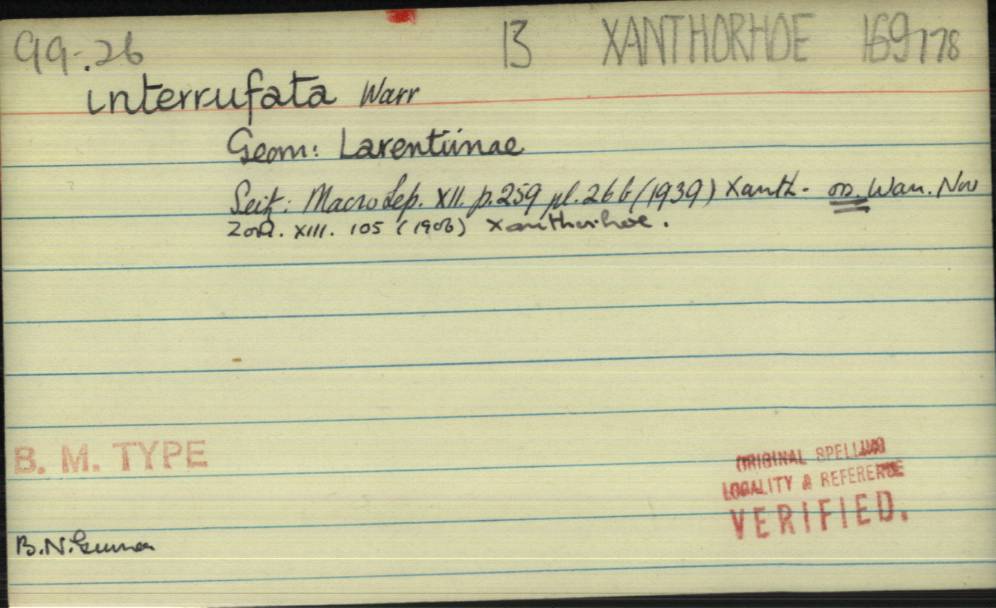 99.26 13 XANTHORHOE 169778
interrufata Warr
Geom: Larentiinae
Seit: Macrolep. XII. p.259 pl.26b (1939) Xanth. on. Warr. Nov
Zool. XIII. 105 (1906) Xanthorhoe.
B. M. TYPE
ORIGINAL SPELLING
LOCALITY & REFERENCE
VERIFIED.
B.N.Guinea